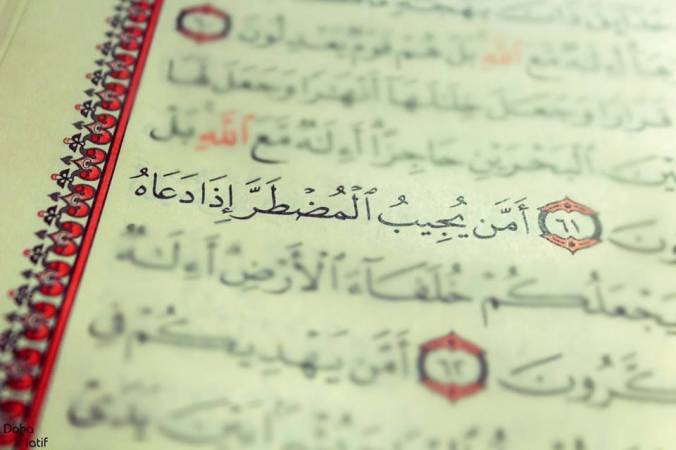 أَءِلَٰهٌ مَّعَ ٱللَّهِ بَلْ هُمْ قَوْمٌ يَعْدِلُونَ ٦٠
قَرَارًا وَجَعَلَ خِلَٰلَهَآ أَنْهَٰرًا وَجَعَلَ لَهَا
ٱلْبَحْرَيْنِ حَاجِزًا أَءِلَٰهٌ مَّعَ ٱللَّهِ بَلْ
ونَ ٦١ أَمَّن يُجِيبُ ٱلْمُضْطَرَّ إِذَا دَعَاهُ
يَجْعَلُكُمْ خُلَفَآءَ ٱلْأَرْضِ أَءِلَٰهٌ
كَّرُونَ ٦٢ أَمَّن يَهْدِيكُمْ فِى
Doha
latif